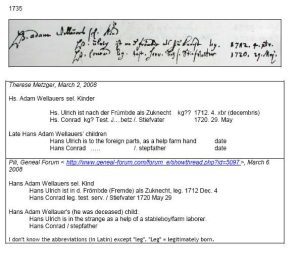 1735
adam sel.
1712. 4. xbr.
1720. 29. May.
Therese Metzger, March 2, 2008
Hs. Adam Wellauers sel. Kinder
Hs. Ulrich ist nach der Frömbde als Zuknecht kg?? 1712. 4. xbr (decembris)
Hs. Conrad kg? Test. J....betz /. Stiefvater 1720. 29. May
Late Hans Adam Wellauers' children
Hans Ulrich is to the foreign parts, as a help farm hand date
Hans Conrad ..... /. stepfather date
Pili, Geneal Forum < http://www.geneal-forum.com/forum_e/showthread.php?id=5097>, March 6
2008
Hans Adam Wellauers sel. Kind
Hans Ulrich ist in d. Frömde (Fremde) als Zuknecht, leg. 1712 Dec. 4
Hans Conrad leg. test. serv. / Stiefvater 1720 May 29
Hans Adam Wellauer's (he was deceased) child:
Hans Ulrich is in the strange as a help of a stableboy/farm laborer.
Hans Conrad / stepfather
I don't know the abbreviations (in Latin) except "leg". "Leg" = legitimately born.